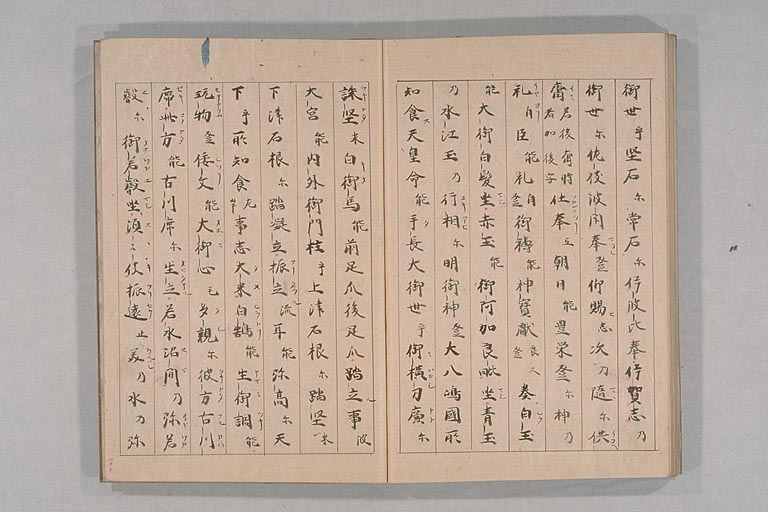 御世乎堅石尓常石尓伊波比奉伊賀志乃
御世尓佐伎波閇奉登仰賜志次乃随尓供
齋若後齋時者加後字仕奉弖朝日能豊栄登尓神乃
礼自臣能礼自登御祷能神寶献良久登奏白玉
能大御白髪坐赤玉能御阿加良毗坐青玉
乃水江玉乃行相尓明御神登大八嶋國所
知食天皇命能手長大御世乎御横刀廣尓
誅堅米白御馬能前足爪後足爪踏立事波
大宮能内外御門柱乎上津石根尓踏堅米
下津石根尓踏凝立振立流耳能弥高尓天
下乎所知食左牟事志太米白鵠能生御調能
玩物登倭文能大御心毛多親尓彼方古川
席此方能古川席尓生立若水沼間乃弥若
叡尓御若叡坐須々伎振遠止美乃水乃弥